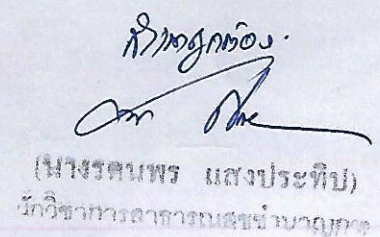 สำเนาถูกต้อง
(นางรตนพร แสงประทีป)
นักวิชาการสาธารณสุขชำนาญการ